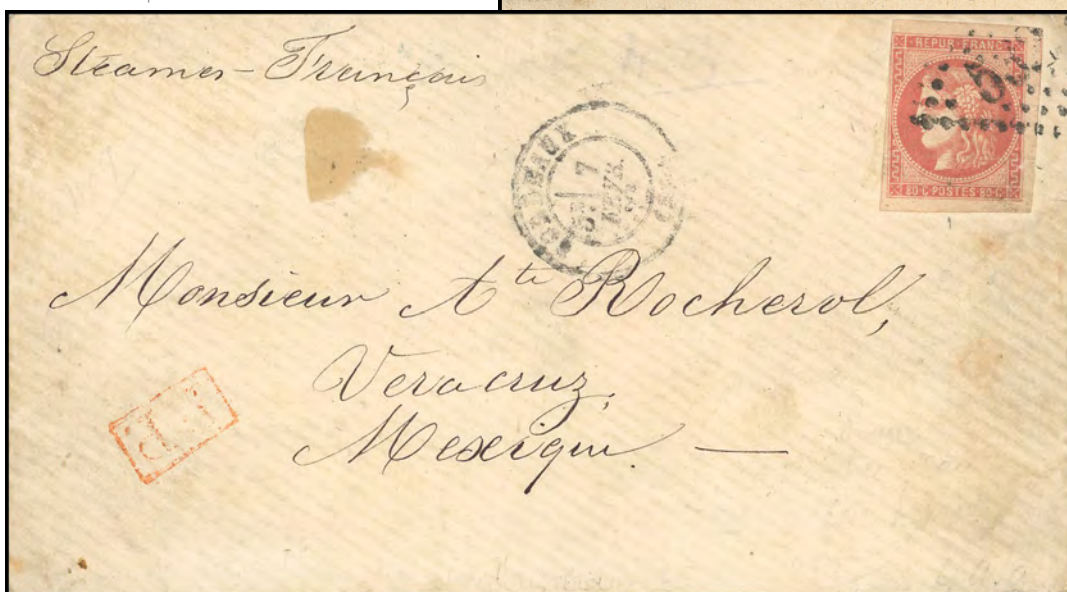 Steamer - Français
REPUB·FRANC
5
80·C POSTES 80·C
BORDEAUX
7
FEVR.
Monsieur Ate Rocherol,
Veracruz,
Mexique. —